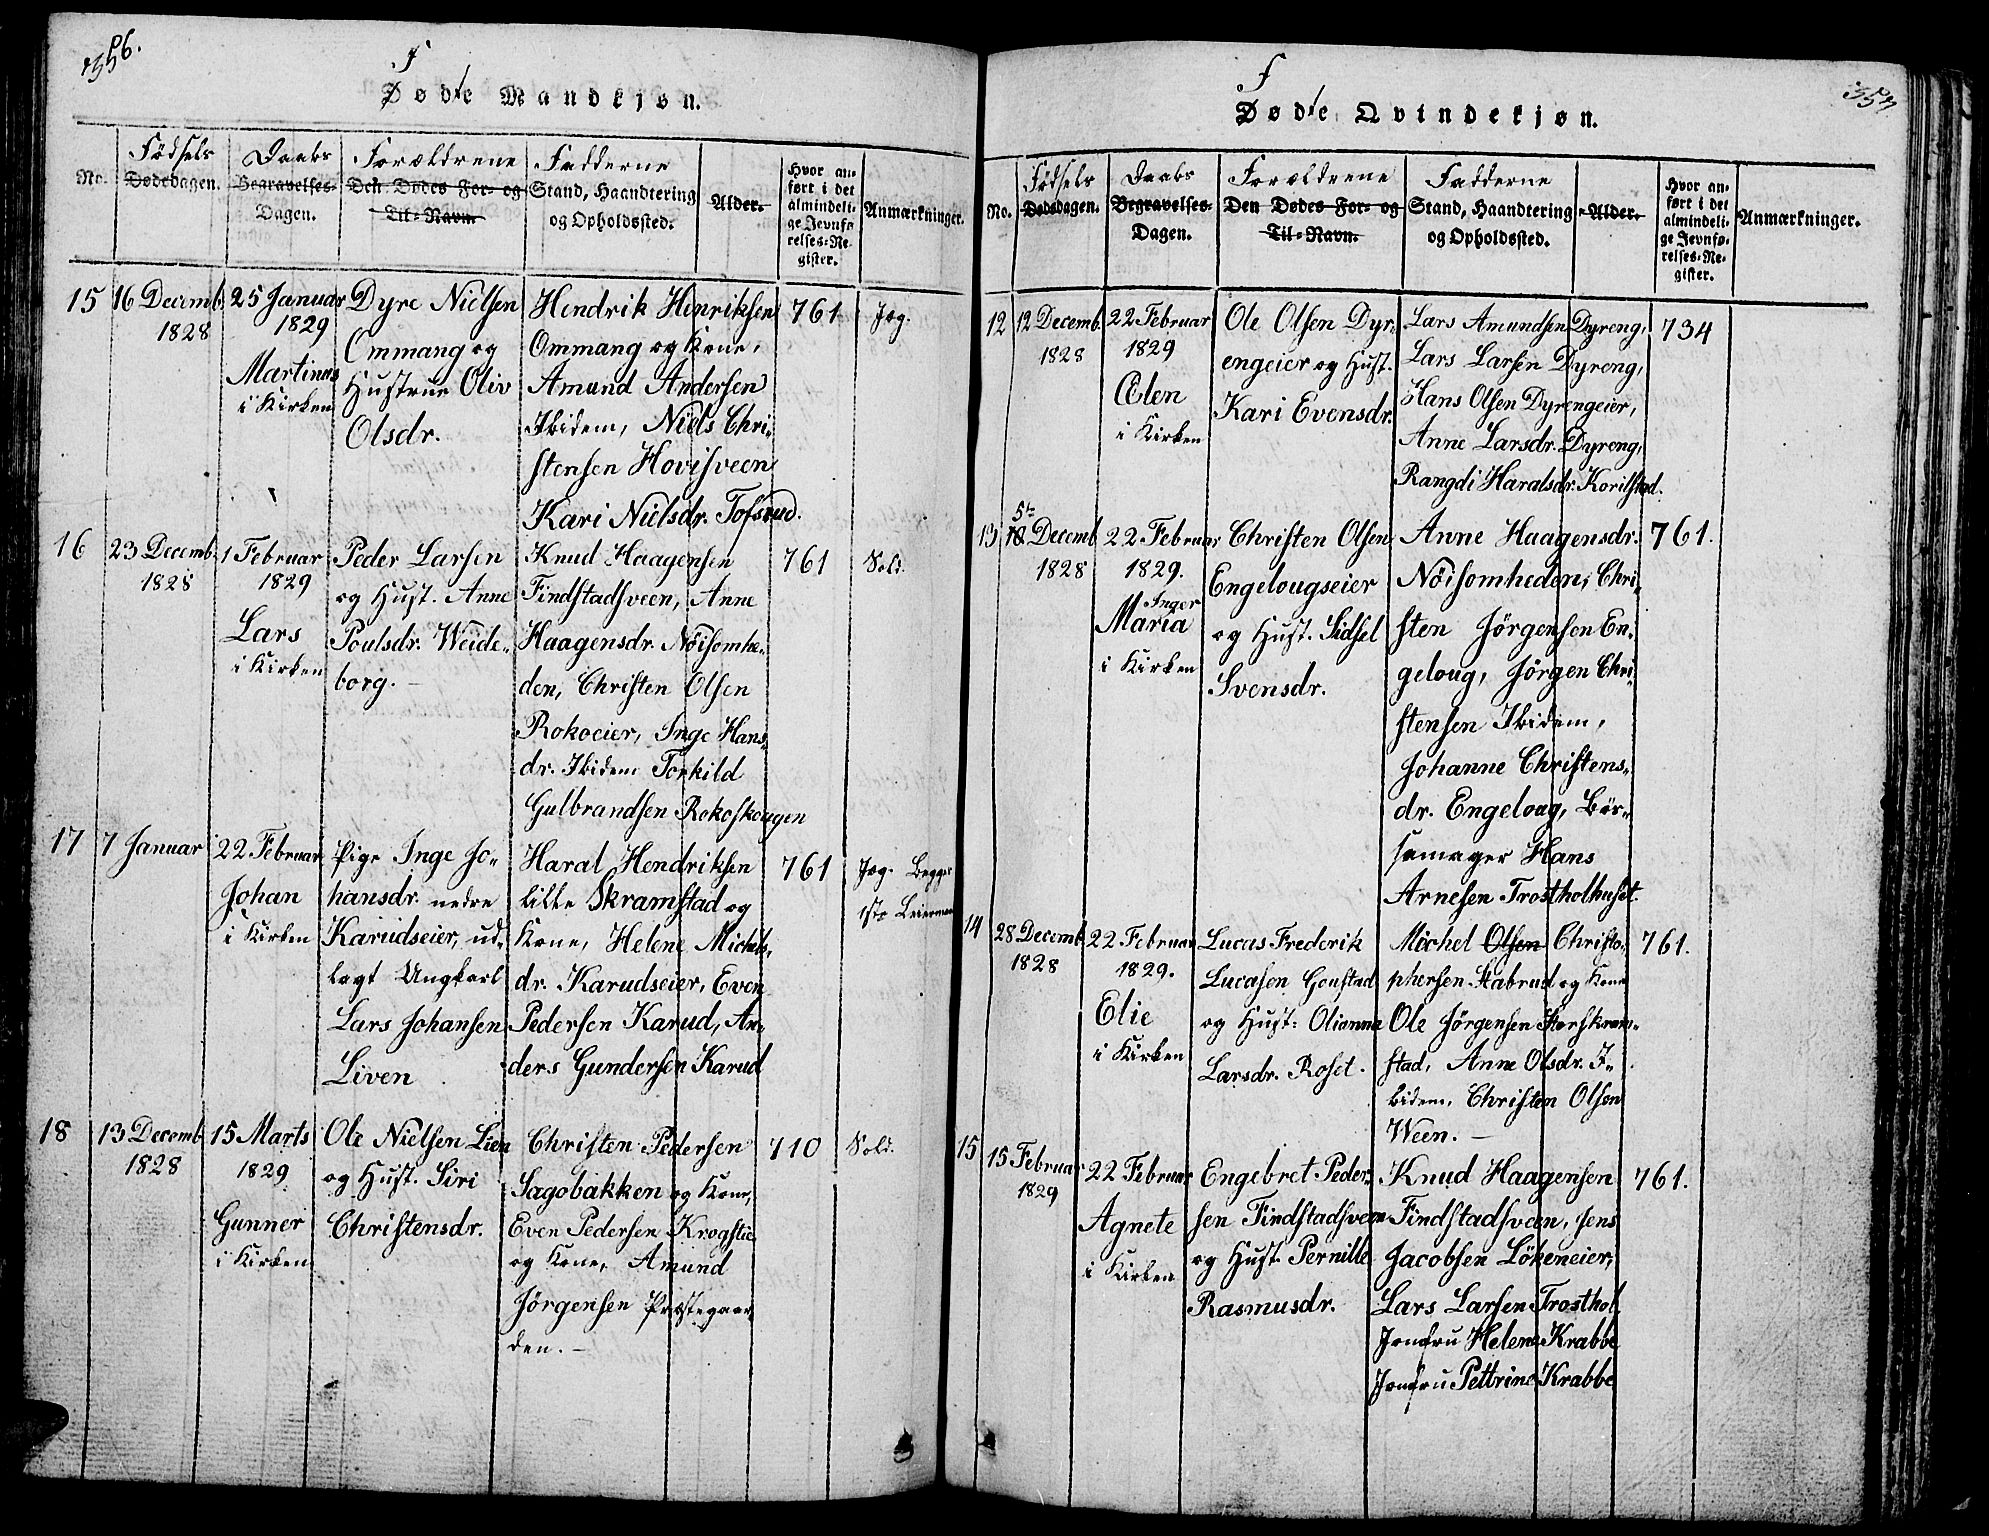 F
Døbte Mandkjøn.
No.
Födsels
Dødsdagen.
Daabs
Begravelses-
Dagen.
Forældrene
Den Dødes For- og
Til-Navn.
Fadderne
Stand, Haandtering
og Opholdssted.
Alder.
Hvor an-
ført i det
almindeli-
ge Jevnfø-
relses-Re-
gister.
Anmærkninger.
15
16 Decemb.
1828
25 Januar
1829
Martinus
i Kirken
Dyre Nielsen
Ommang og
Hustrue Oliv
Olsdr.
Hendrik Henriksen
Ommang og Kone,
Amund Andersen
Ibidem, Niels Chri-
stensen Hovisveen
Kari Nielsdr. Tofsrud.
761
Jæg.
16
23 Decemb.
1828
1 Februar
1829
Lars
i Kirken
Peder Larsen
og Hust. Anne
Poulsdr. Weide-
borg. -
Knud Haagensen
Findstadsveen, Anne
Haagensdr. Nöisomhe-
den, Christen Olsen
Rokoeier, Inge Hans-
dr. Ibidem Torkild
Gulbrandsen Rokoskougen
761
Sold.
17
7 Januar
22 Februar
Johan
i Kirken
Pige Inge Jo-
hansdr. nedre
Karudseier, ud-
lagt Ungkarl
Lars Johansen
Liven
Haral Hendriksen
lille Skramstad og
Kone, Helene Michels-
dr. Karudseier, Even
Pedersen Karud, An-
ders Gundersen Karud
761
Jæg. Begges
1ste Leiermaal
18
13 Decemb.
1828
15 Marts
1829
Gunner
i Kirken
Ole Nielsen Lien
og Hust. Siri
Christensdr.
Christen Pedersen
Sagobakken og Kone,
Even Pedersen Krogstie
og Kone, Amund
Jörgensen Præstegaar-
den. -
710
Sold.
F
Døbte Qvindekjøn.
No.
Födsels
Dødsdagen.
Daabs
Begravelses-
Dagen.
Forældrene
Den Dødes For- og
Til-Navn.
Fadderne
Stand, Haandtering
og Opholdssted.
Alder.
Hvor an-
ført i det
almindeli-
ge Jevnfø-
relses-Re-
gister.
Anmærkninger.
12
12 Decemb.
1828
22 Februar
1829
Elen
i Kirken
Ole Olsen Dyr-
engeier og Hust.
Kari Evensdr.
Lars Amundsen Dyreng,
Lars Larsen Dyreng,
Hans Olsen Dyrengeier,
Anne Larsdr. Dyreng,
Rangdi Haralsdr. Korilstad.
734
13
5te
Decemb.
1828
22 Februar
1829.
Inger
Maria
i Kirken
Christen Olsen
Engelougseier
og Hust. Sidsel
Svensdr.
Anne Haagensdr.
Nöisomheden, Chri-
sten Jörgensen En-
geloug, Jörgen Chri-
stensen Ibidem,
Johanne Christens-
dr. Engeloug, Bös-
semager Hans
Arnesen Trostholhuset.
761.
14
28 Decemb.
1828
22 Februar
1829.
Elie
i Kirken
Lucas Frederik
Lucasen Gonstad
og Hust: Olianna
Larsdr. Roset.
Michel Olsen Christo-
phersen Stabrud og Kone
Ole Jörgensen Storskram-
stad, Anne Olsdr. I-
bidem, Christen Olsen
Ween. -
761.
15
15 Februar
1829
22 Februar
Agnete
i Kirken
Engebret Peder-
sen Findstadsveen
og Hust. Pernille
Rasmusdr.
Knud Haagensen
Findstadsveen, Jens
Jacobsen Lökeneier,
Lars Larsen Trosthol
Jomfru Helene Krabbe
Jomfru Pettrine Krabbe
761.